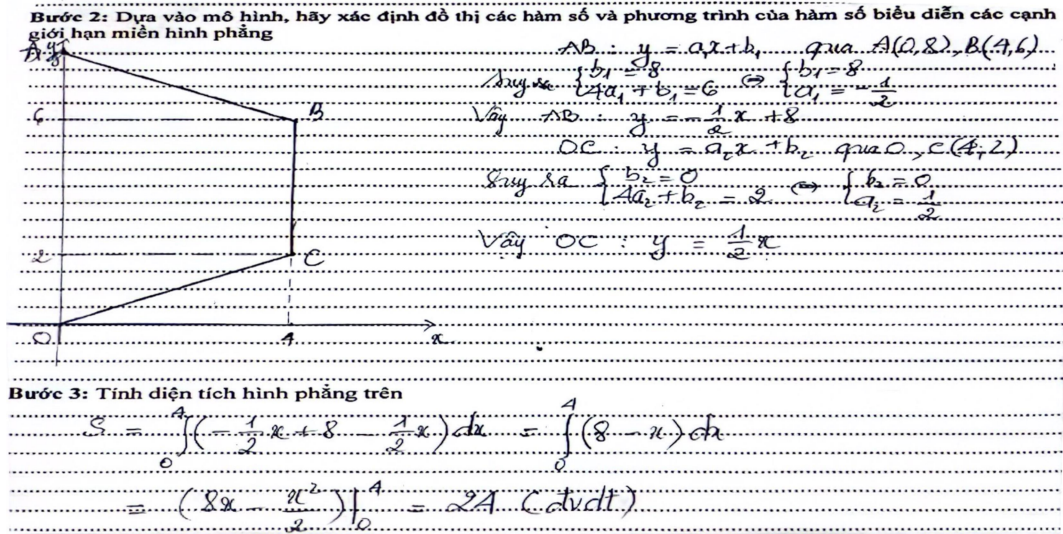 Bước 2: Dựa vào mô hình, hãy xác định đồ thị các hàm số và phương trình của hàm số biểu diễn các cạnh
giới hạn miền hình phẳng
A y
6
B
2
C
O 4 x
AB : y = a₁x + b₁ qua A(0,8), B(4,6)
Suy ra { b₁ = 8 ; 4a₁ + b₁ = 6 ⇔ { b₁ = 8 ; a₁ = -1/2
Vây AB : y = -1/2 x + 8
OC : y = a₂x + b₂ qua O, C(4,2)
Suy ra { b₂ = 0 ; 4a₂ + b₂ = 2 ⇔ { b₂ = 0 ; a₂ = 1/2
Vây OC : y = 1/2 x
Bước 3: Tính diện tích hình phẳng trên
S = ∫₀⁴ (-1/2 x + 8 - 1/2 x) dx = ∫₀⁴ (8 - x) dx
= (8x - x²/2) |₀⁴ = 24 (đvdt)